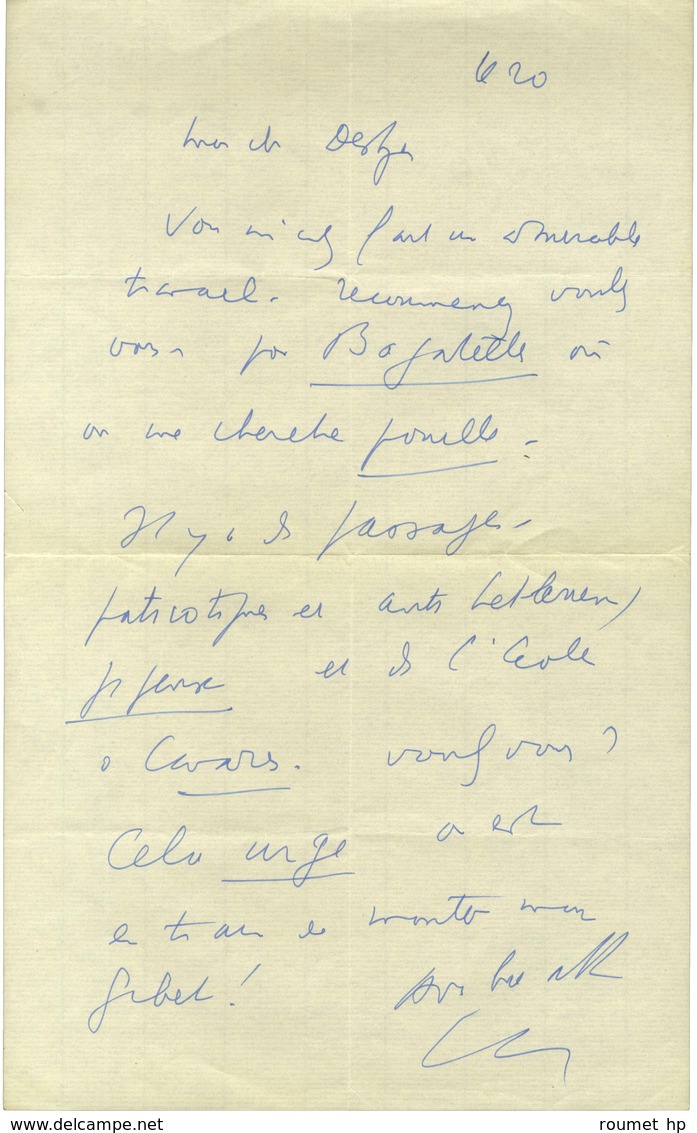 le 20
Mon ch
Vous m'avez fait un admirable
travail. recommencez voulez
vous pour Bagatelles où
on me cherche pouille.
Il y a des passages
patriotiques et anti hitlerien,
je pense et de l'Ecole
a voulez vous ?
Cela urge on est
en train de monter mon
gibet !
roumet hp